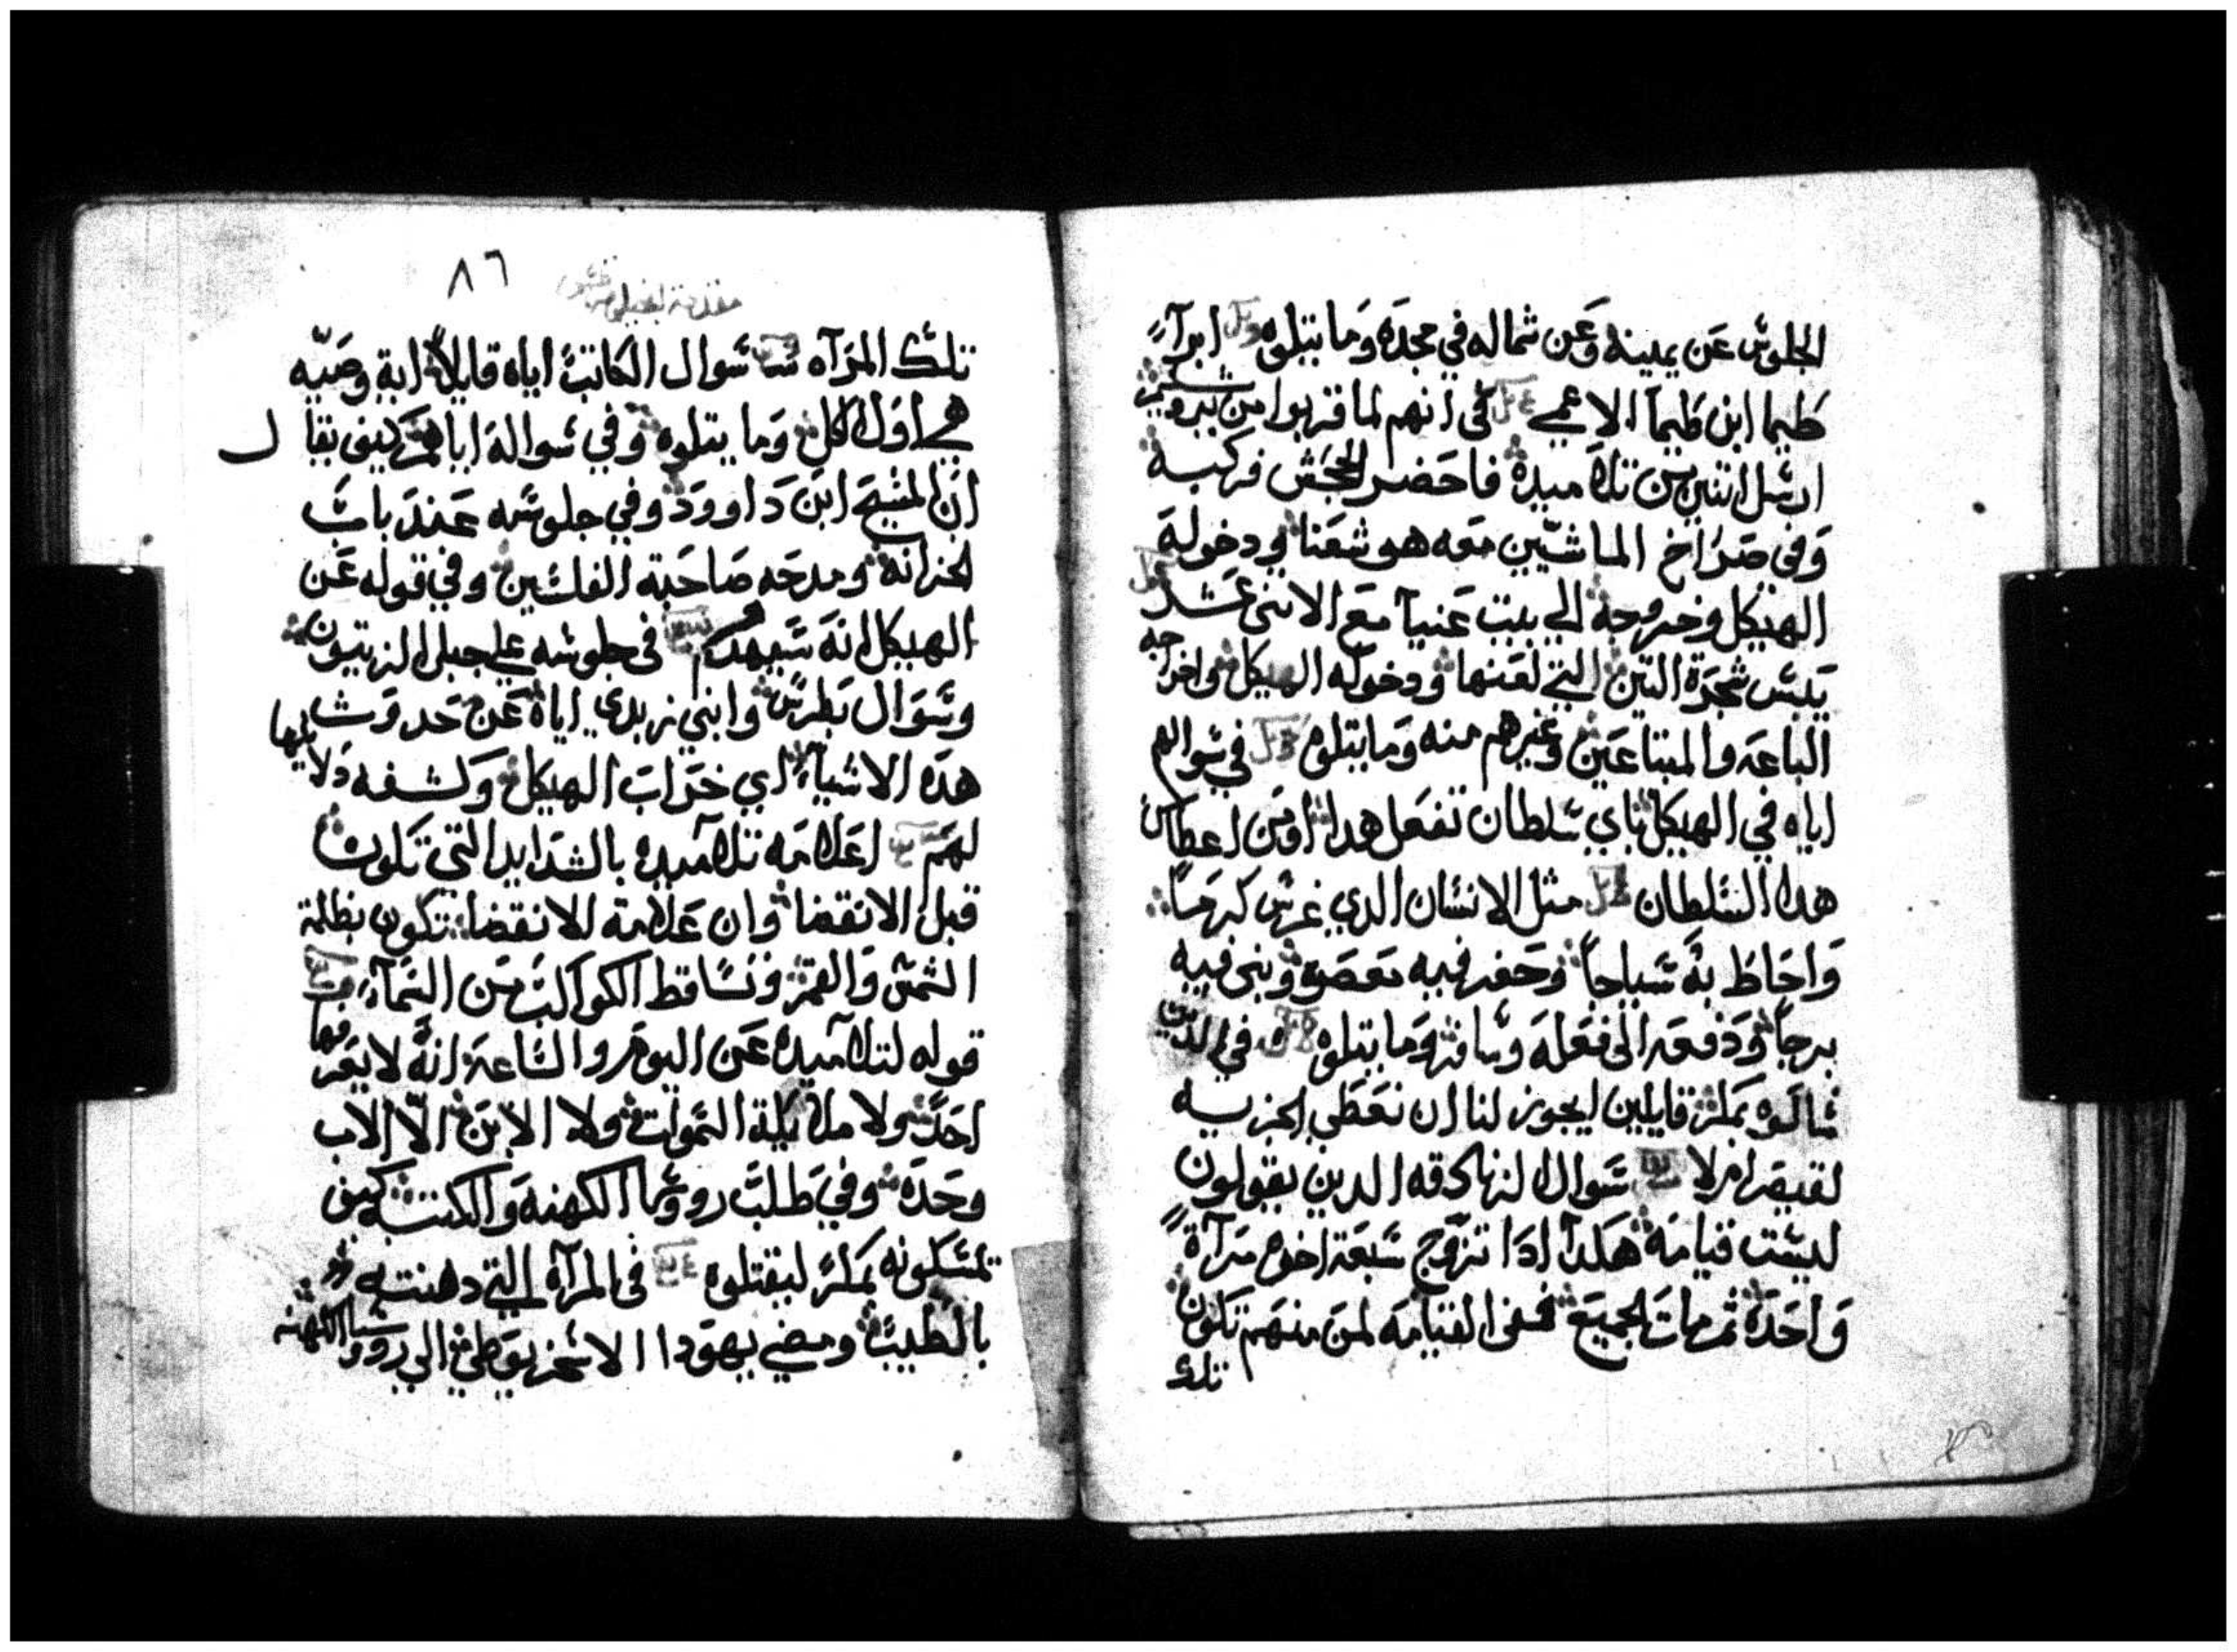 الجلوس عن يمينه وعن شماله في مجده وما يتلوه ابرآء
طيما ابن طيما الاعمي في انهم لما قربوا من
ارسل اتنين من تلاميده فاحضر الجحش فركبه
وفي صراخ الماشيين معه هوشعنا ودخوله
الهيكل وخروجه الي بيت عنيا مع الاتني عشر
يبس شجرة التين التي لعنها ودخوله الهيكل واخراجه
الباعه والمبتاعين وغيرهم منه وما يتلوه في سوالهم
اياه في الهيكل باي سلطان تفعل هدا او من اعطاك
هدا السلطان مثل الانسان الدي غرس كرما
واحاط به سياجا وحفر فيه معصره وبني فيه
برجا ودفعه الي فعله وسافر وما يتلوه في الدين
سالوه بمكر قايلين ايجوز لنا ان نعطي الجزيه
لقيصر ام لا سوال الزنادقه الدين يقولون
ليست قيامه هكدا ادا تزوج سبعة اخوه مرآة
واحده ثم مات الجميع ففي القيامه لمن منهم تكون
تلك
٨٦
مقدمة انجيل مرقس
تلك المرآه سوال الكاتب اياه قايلا اية وصيه
هي اول الكل وما يتلوه وفي سواله اياهم كيف يقال
ان المسيح ابن داوود وفي جلوسه عند باب
الخزانه ومدحه صاحبة الفلسين وفي قوله عن
الهيكل انه سيهدم في جلوسه علي جبل الزيتون
وسوال بطرس وابني زبدي اياه عن حدوث
هده الاشياء اي خراب الهيكل وكشفه دلايلها
لهم اعلامه تلاميده بالشدايد التي تكون
قبل الانقضا وان علامة الانقضا تكون بظلمة
الشمس والقمر وتساقط الكواكب من السمآء
قوله لتلاميده عن اليوم والساعه انه لا يعرفها
احد ولا ملايكة السموات ولا الابن الا الاب
وحده وفي طلب روسا الكهنه والكتبه كيف
تمسكونه بمكر ليقتلوه في المرآه التي دهنته
بالطيب ومضي يهودا الاسخريوطي الي روسا الكهنه